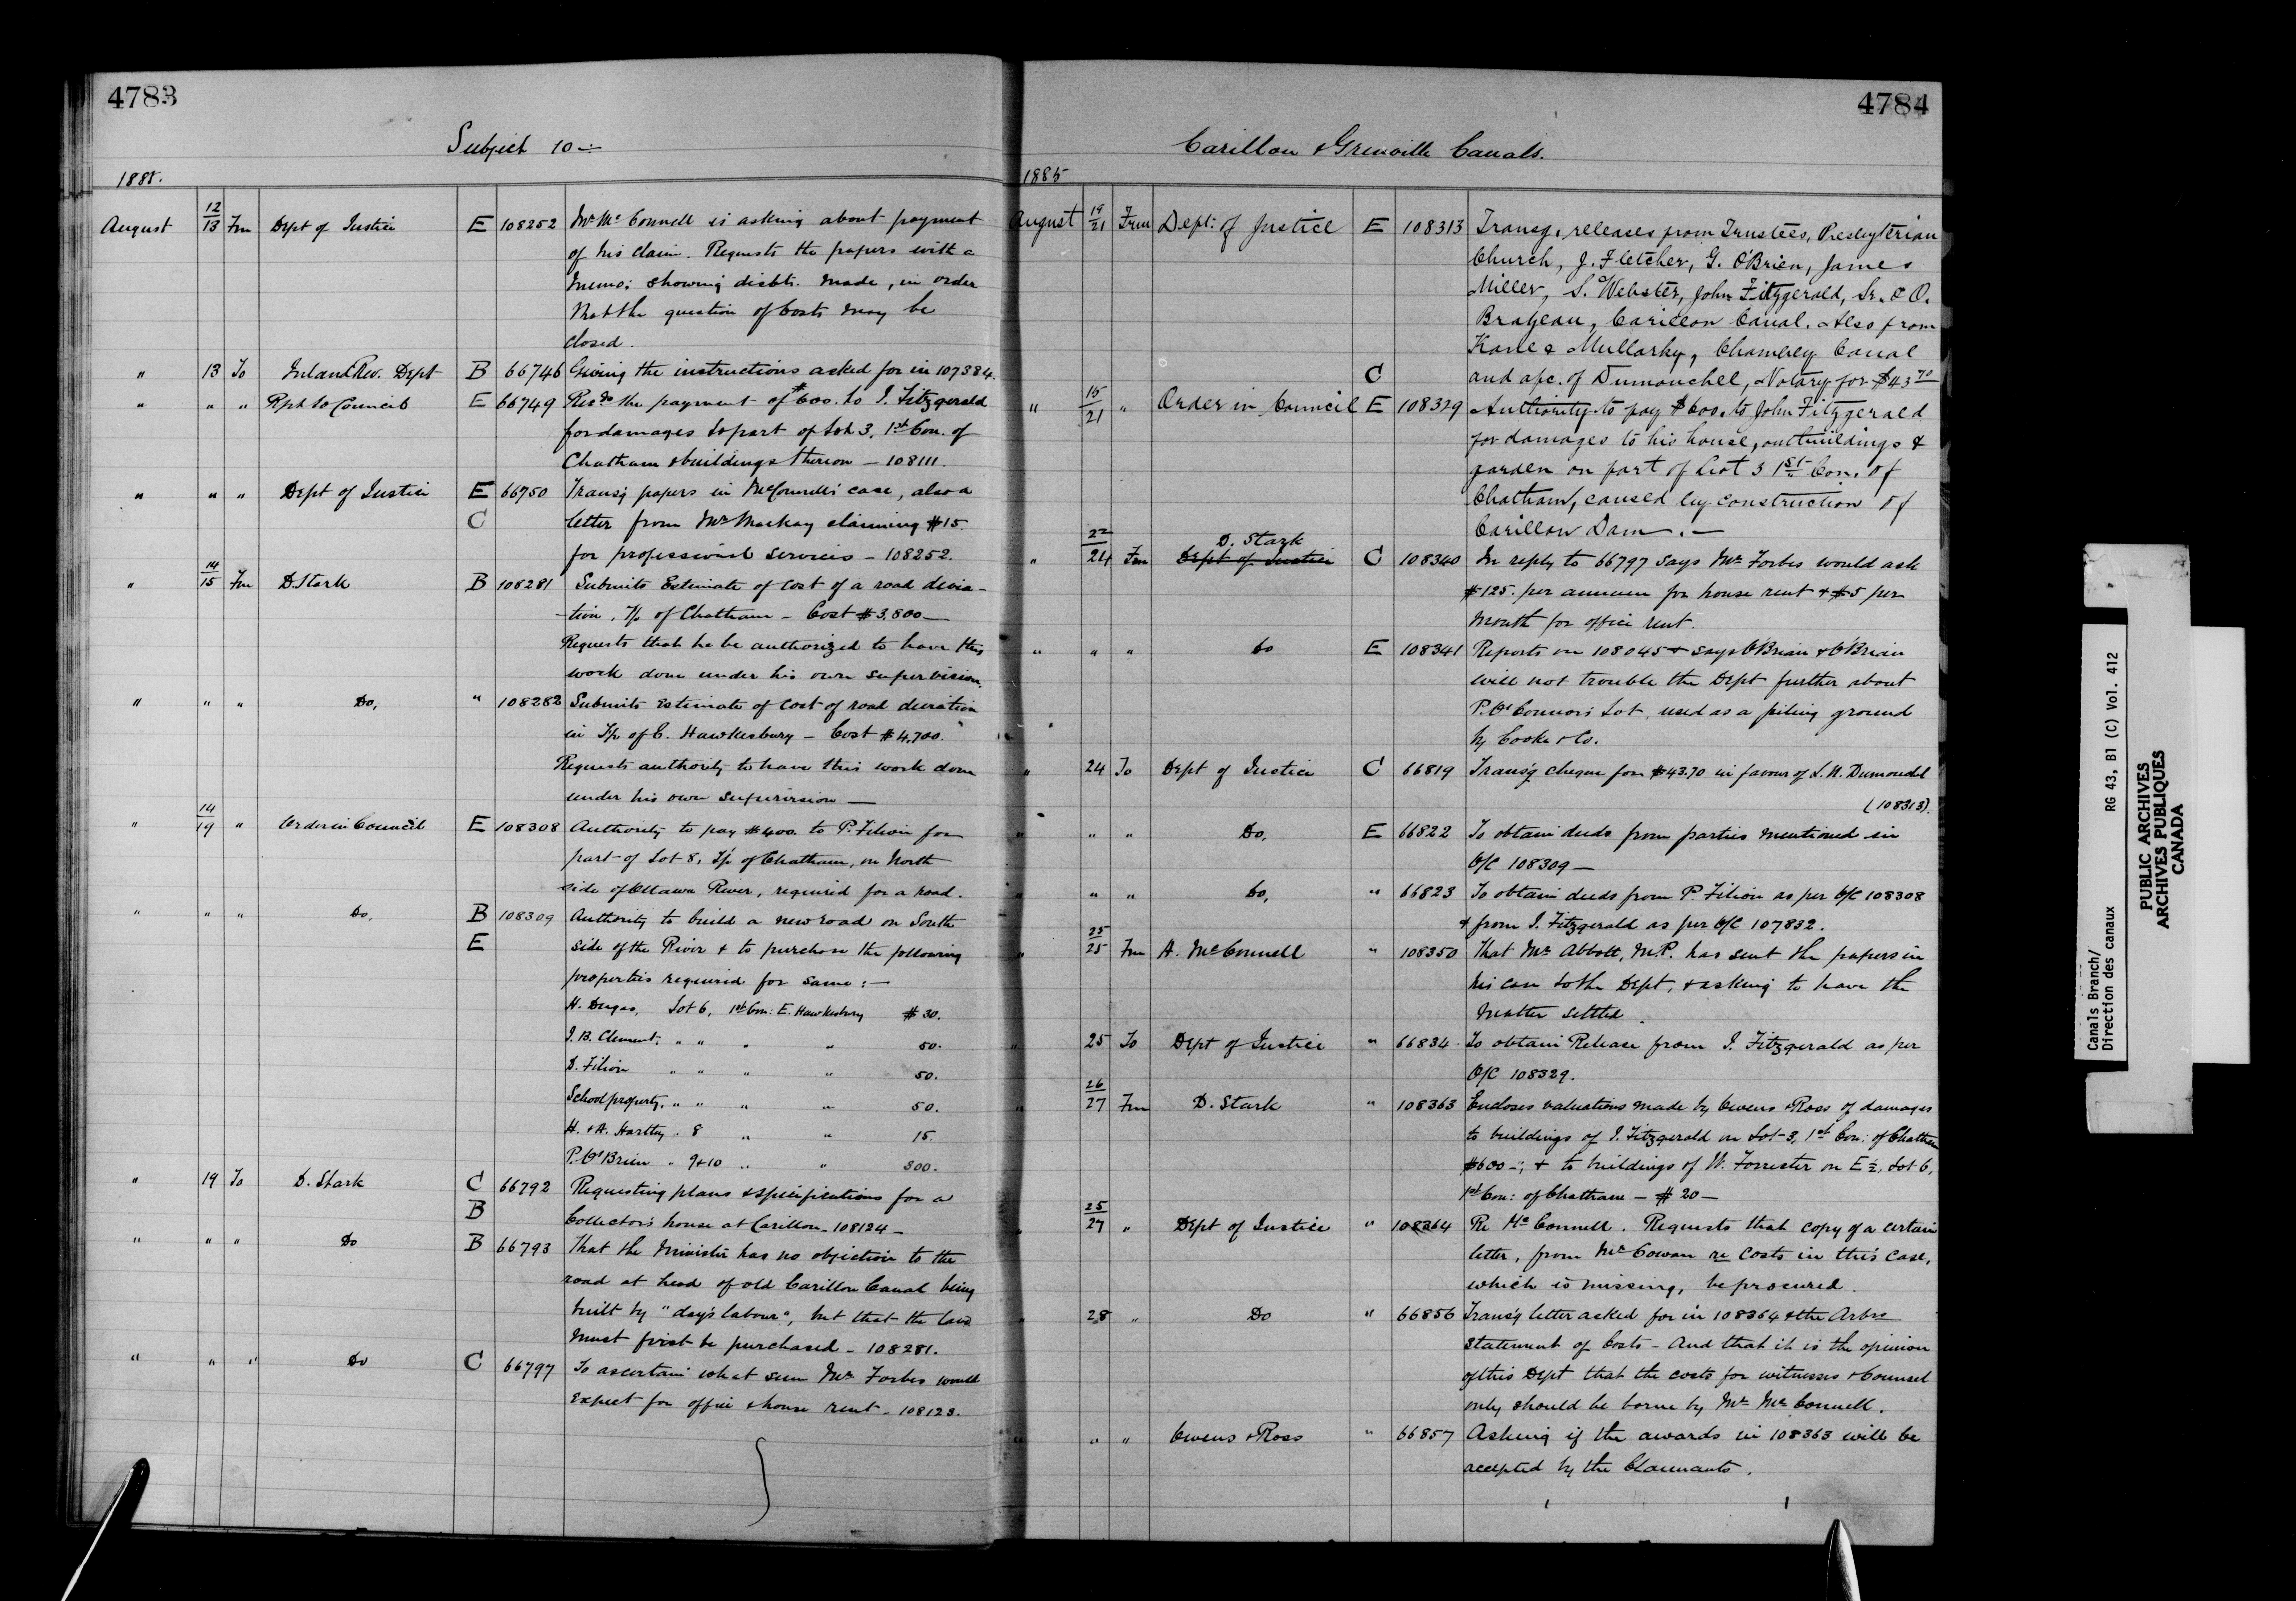 4783
Subject 10 —
1885.
August 12/13 Fm Dept of Justice E 108252 Mr. McConnell is asking about payment
of his claim. Requests the papers with a
memo: showing disbts. made, in order
that the question of Costs may be
closed.
" 13 To Inland Rev. Dept B 66746 Giving the instructions asked for in 107384.
" " " Rpt to Council E 66749 Recdg the payment of $600. to J. Fitzgerald
for damages to part of Lot 3, 1st Con. of
Chatham & buildings thereon — 108111.
" " " Dept of Justice E 66750 Transg papers in McConnell's case, also a
C letter from Mr Mackay claiming $15.
for professional services — 108252.
" 14/15 Fm D. Stark B 108281 Submits Estimate of cost of a road devia-
-tion, T/p of Chatham — Cost $3,800 —
Requests that he be authorized to have this
work done under his own supervision.
" " " Do, " 108282 Submits Estimate of cost of road deviation
in T/p of E. Hawkesbury — Cost $4,700.
Requests authority to have this work done
under his own supervision —
" 14/19 " Order in Council E 108308 Authority to pay $400. to P. Filion for
part of Lot 8, T/p of Chatham, on North
side of Ottawa River, required for a road.
" " " Do, B 108309 Authority to build a new road on South
E side of the River & to purchase the following
properties required for same: —
H. Dugas, Lot 6, 1st Con: E. Hawkesbury $30.
J. B. Clement, " " " " 50.
D. Filion " " " " 50.
School property, " " " " 50.
H. & A. Hartley . 8 " " 15.
P. O'Brien " 9 & 10 " " 300.
" 19 To D. Stark C 66792 Requesting plans & specifications for a
B Collector's house at Carillon — 108124 —
" " " Do B 66793 That the Minister has no objection to the
road at head of old Carillon Canal being
built by "day's labour", but that the land
must first be purchased — 108281.
" " " Do C 66797 To ascertain what sum Mr. Forbes would
expect for office & house rent — 108123.
4784
Carillon & Grenville Canals.
1885
August 19/21 From Dept: of Justice E 108313 Transg. releases from Trustees, Presbyterian
Church, J. Fletcher, G. O'Brien, James
Miller, S. Webster, John Fitzgerald, Sr. & O.
Brazeau, Carillon Canal. Also from
Kane & Mullarky, Chambly Canal
C and a/c. of Dumouchel, Notary for $43 70
" 15/21 " Order in Council E 108329 Authority to pay $600. to John Fitzgerald
for damages to his house, outbuildings &
garden on part of Lot 3 1st Con. of
Chatham, caused by construction of
Carillon Dam. —
D. Stark
" 22/24 Fm Dept of Justice C 108340 In reply to 66797 says Mr Forbes would ask
$125. per annum for house rent & $5 per
month for office rent.
" " " Do E 108341 Reports on 108045 & says O'Brian & O'Brian
will not trouble the Dept further about
P. O'Connor's Lot, used as a piling ground
by Cooke & Co.
" 24 To Dept of Justice C 66819 Transg cheque for $43.70 in favour of L. N. Dumouchel
(108313).
" " " Do, E 66822 To obtain deeds from parties mentioned in
O/C 108309 —
" " " Do, " 66823 To obtain deeds from P. Filion as per O/C 108308
& from J. Fitzgerald as per O/C 107832.
" 25/25 Fm A. McConnell " 108350 That Mr Abbott, M.P. has sent the papers in
his case to the Dept, & asking to have the
matter settled.
" 25 To Dept of Justice " 66834 To obtain Release from J. Fitzgerald as per
O/C 108329.
" 26/27 Fm D. Stark " 108363 Encloses valuations made by Owens & Ross of damages
to buildings of J. Fitzgerald on Lot 3, 1st Con: of Chatham
$600 —; & to buildings of W. Forrester on E ½, Lot 6,
1st Con: of Chatham — $20 —
" 25/27 " Dept of Justice " 108364 Re McConnell. Requests that copy of a certain
letter, from Mr Cowan re costs in this case,
which is missing, be procured.
" 28 " Do " 66856 Transg letter asked for in 108364 & the Arbrs
Statement of Costs — And that it is the opinion
of this Dept that the costs for witnesses & Counsel
only should be borne by Mr. McConnell.
" " " Owens & Ross " 66857 Asking if the awards in 108363 will be
accepted by the Claimants.
Canals Branch/
Direction des canaux RG 43, B1 (C) Vol. 412
PUBLIC ARCHIVES
ARCHIVES PUBLIQUES
CANADA